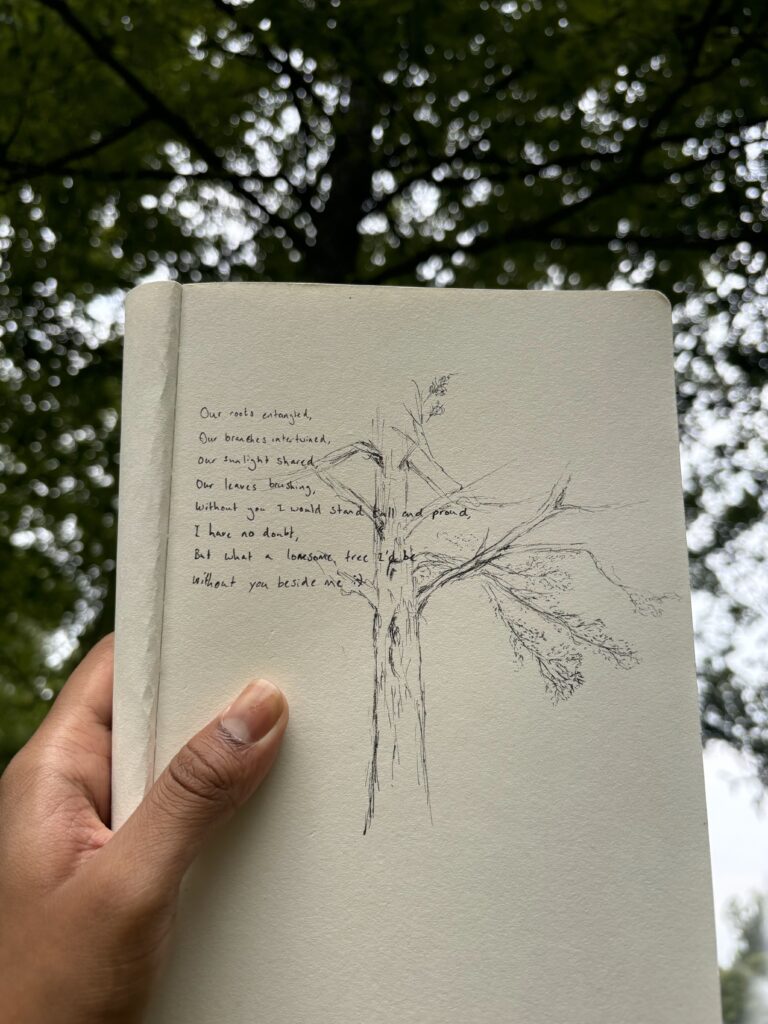 Our roots entangled,
Our branches intertwined,
Our sunlight shared,
Our leaves brushing,
Without you I would stand tall and proud,
I have no doubt,
But what a lonesome tree I'd be
Without you beside me